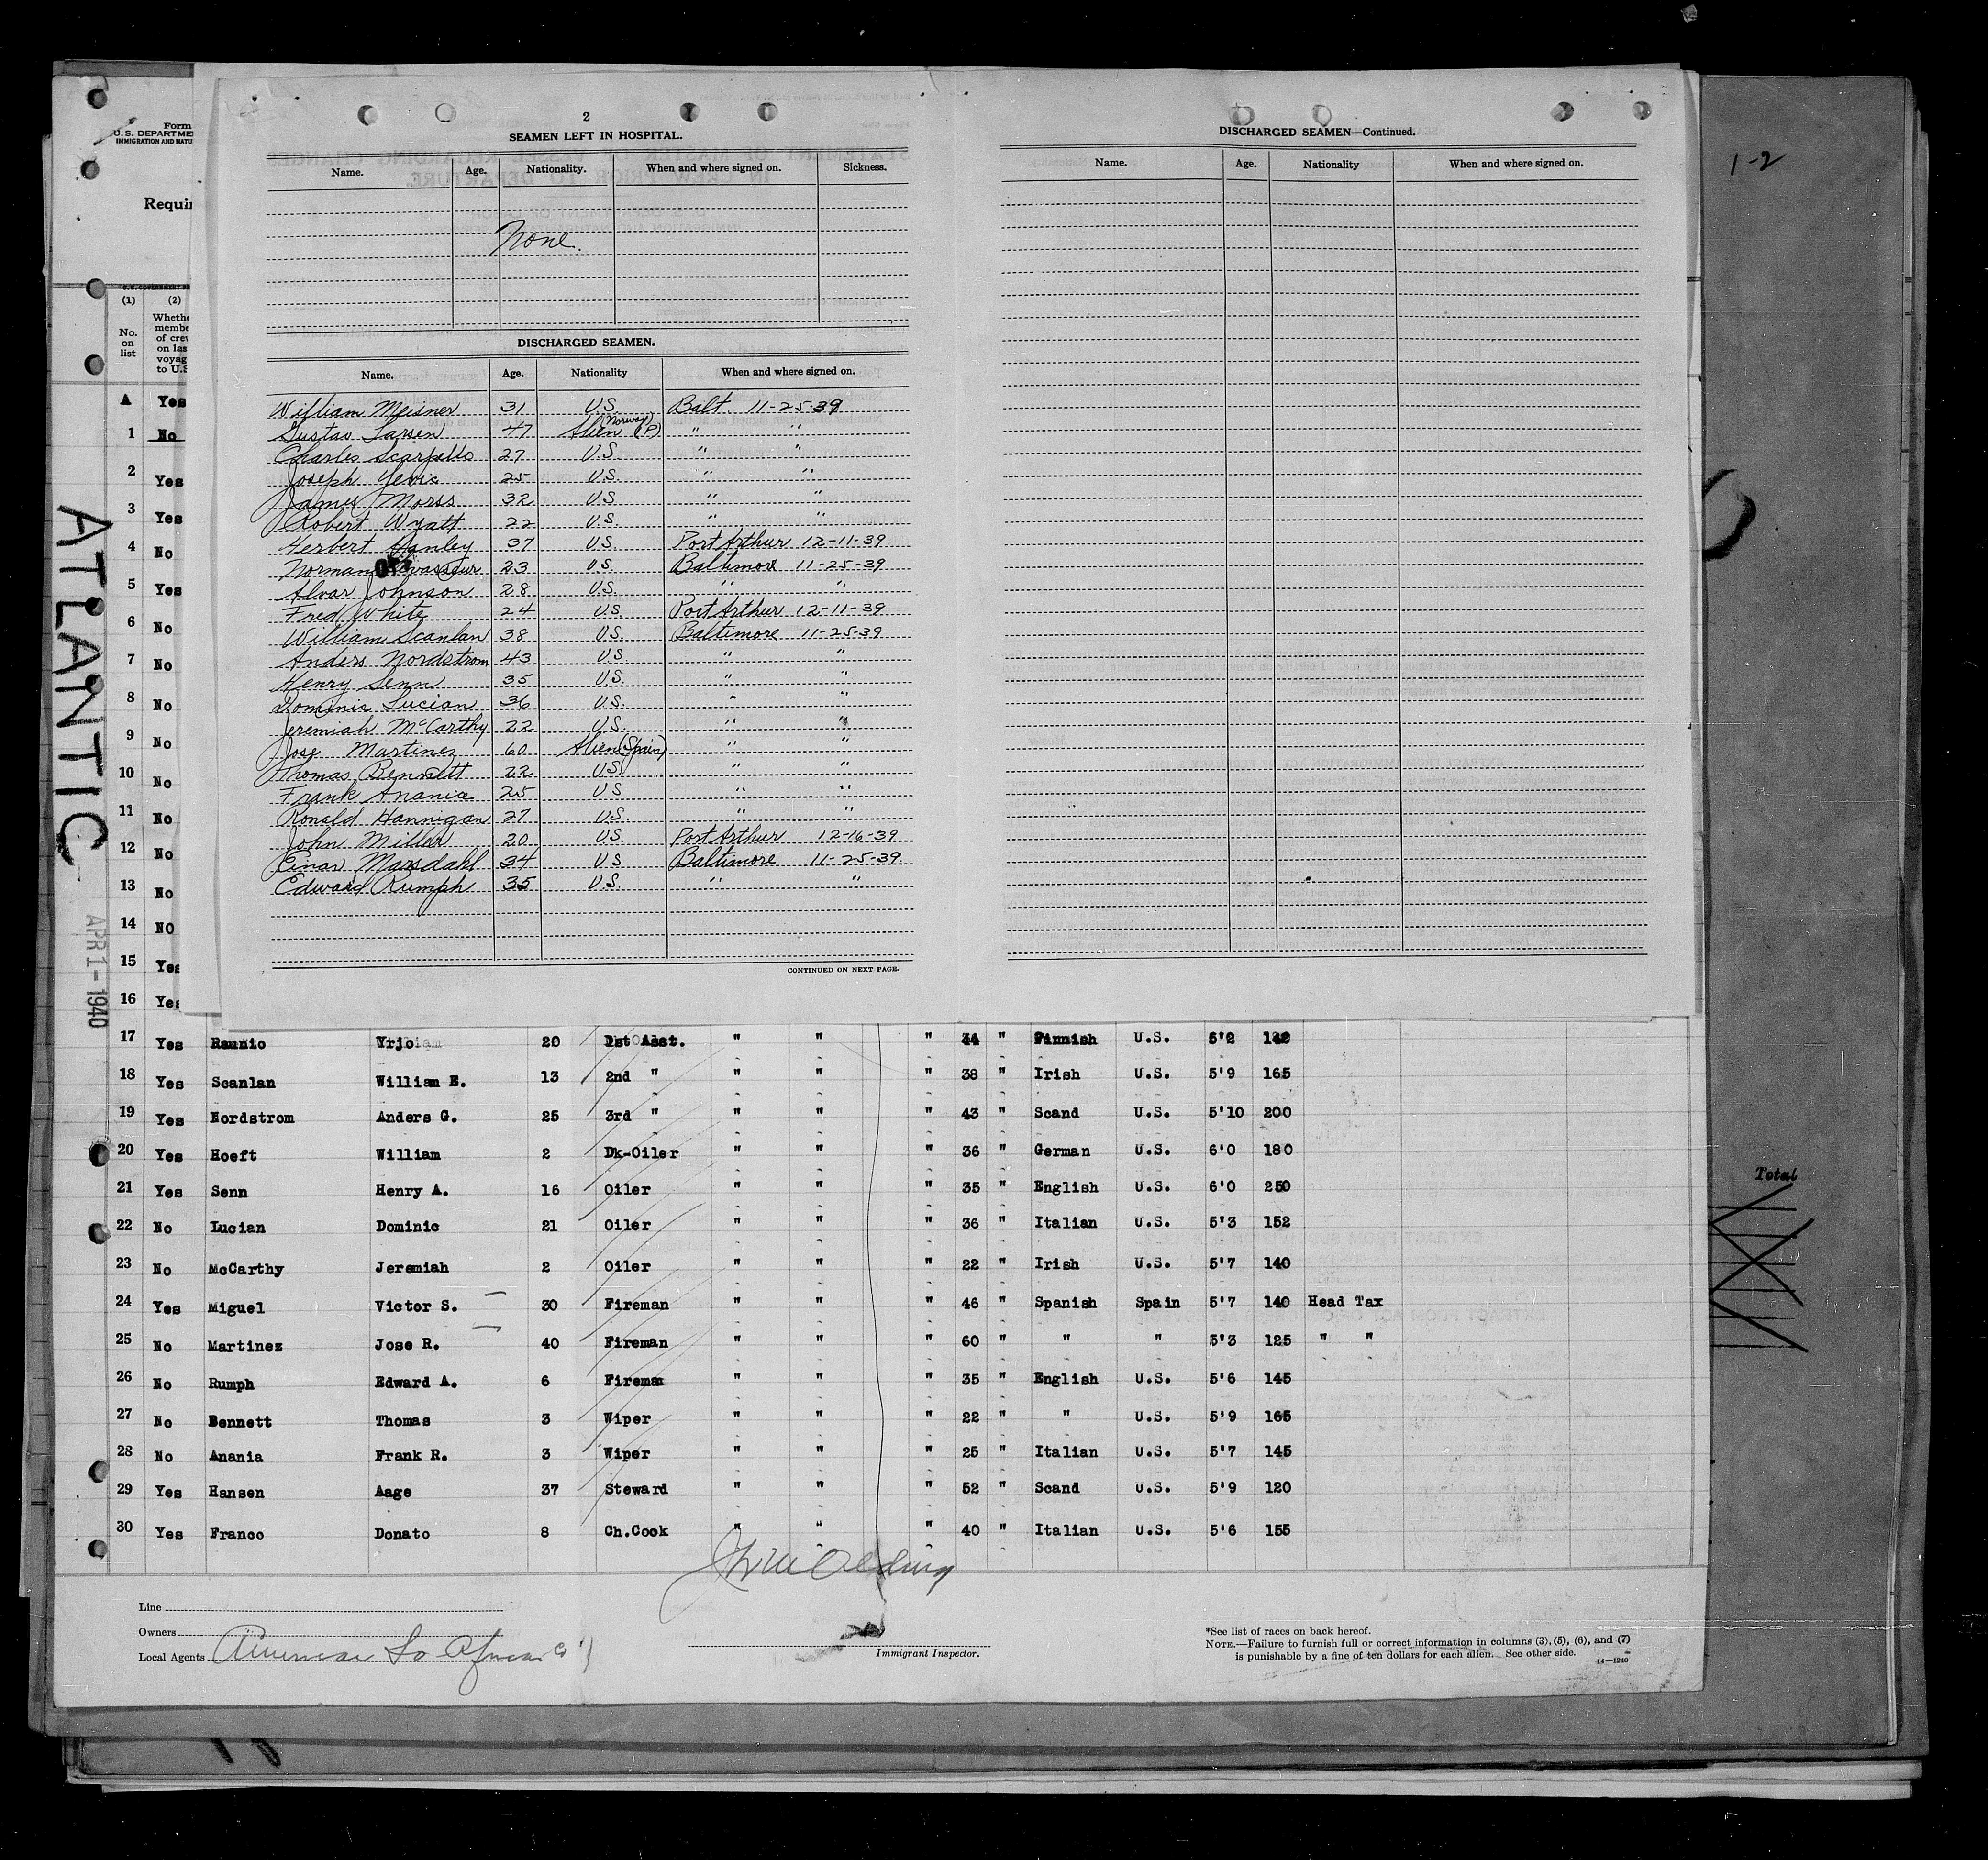 2
SEAMEN LEFT IN HOSPITAL.
Name. Age. Nationality. When and where signed on. Sickness.
None.
DISCHARGED SEAMEN.
Name. Age. Nationality When and where signed on.
William Meisner 31 U.S. Balt. 11-25-39
Gustav Larsen 47 Alien (Norway) (P) " "
Charles Scarpello 27 U.S. " "
Joseph Yevic 25 U.S. " "
James Morss 32 U.S " "
Robert Wyatt 22 U.S. " "
Herbert Hanley 37 U.S. Port Arthur 12-11-39
Norman 23 U.S. Baltimore 11-25-39
Alvar Johnson 28 U.S. " "
Fred White 24 U.S Port Arthur 12-11-39
William Scanlan 38 U.S. Baltimore 11-25-39
Anders Nordstrom 43 U.S. " "
Henry Senn 35 U.S. " "
Dominic Lucian 36 U.S. " "
Jeremiah McCarthy 22 U.S. " "
Jose Martinez 60 Alien (Spain) " "
Thomas Bennett 22 U.S. " "
Frank Anania 25 U.S " "
Ronald Hannigan 27 U.S. " "
John Miller 20 U.S. Port Arthur 12-16-39
Einar Marsdahl 34 U.S Baltimore 11-25-39
Edward Rumph 35 U.S. " "
CONTINUED ON NEXT PAGE.
DISCHARGED SEAMEN—Continued.
Name. Age. Nationality When and where signed on.
1-2
Form
U.S. DEPARTME
IMMIGRATION AND NATU
Requir
(1) (2)
No. on list
Whethe
membe
of crew
on las
voyag
to U.S
▲ Yes
1 No
2 Yes
3 Yes
4 No
5 Yes
6 No
7 No
8 No
9 No
10 No
11 No
12 No
13 No
14 NO
15 Yes
16 Yes
ATLANTIC
APR 1 - 1940
17 Yes Raunio Yrjo 20 1st Asst. " " " 34 " Finnish U.S. 5'2 140
18 Yes Scanlan William E. 13 2nd " " " " 38 " Irish U.S. 5'9 165
19 Yes Nordstrom Anders G. 25 3rd " " " " 43 " Scand U.S. 5'10 200
20 Yes Hoeft William 2 Dk-Oiler " " " 36 " German U.S. 6'0 180
21 Yes Senn Henry A. 16 Oiler " " " 35 " English U.S. 6'0 250
22 No Lucian Dominic 21 Oiler " " " 36 " Italian U.S. 5'3 152
23 No McCarthy Jeremiah 2 Oiler " " " 22 " Irish U.S. 5'7 140
24 Yes Miguel Victor S. 30 Fireman " " " 46 " Spanish Spain 5'7 140 Head Tax
25 No Martinez Jose R. 40 Fireman " " " 60 " " " 5'3 125 " "
26 No Rumph Edward A. 6 Fireman " " " 35 " English U.S. 5'6 145
27 No Bennett Thomas 3 Wiper " " " 22 " " U.S. 5'9 165
28 No Anania Frank R. 3 Wiper " " " 25 " Italian U.S. 5'7 145
29 Yes Hansen Aage 37 Steward " " " 52 " Scand U.S. 5'9 120
30 Yes Franco Donato 8 Ch.Cook " " " 40 " Italian U.S. 5'6 155
Total
Line
Owners
Local Agents American So African
Immigrant Inspector.
*See list of races on back hereof.
NOTE.—Failure to furnish full or correct information in columns (3), (5), (6), and (7)
is punishable by a fine of ten dollars for each alien. See other side. 14—1240